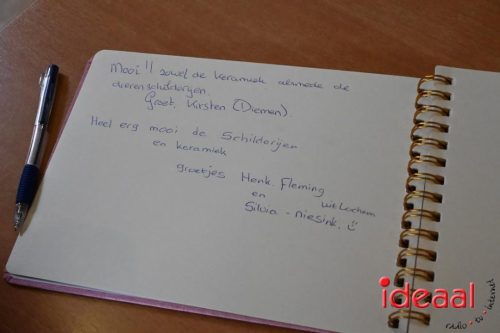 Mooi !! zowel de keramiek alsmede de
dierenschilderijen
Groet, Kirsten (Diemen).
Heel erg mooi de Schilderijen
en keramiek
groetjes Henk. Fleming
en uit Lochem
Silvia - niesink. ü
ideaal
radio • tv • internet